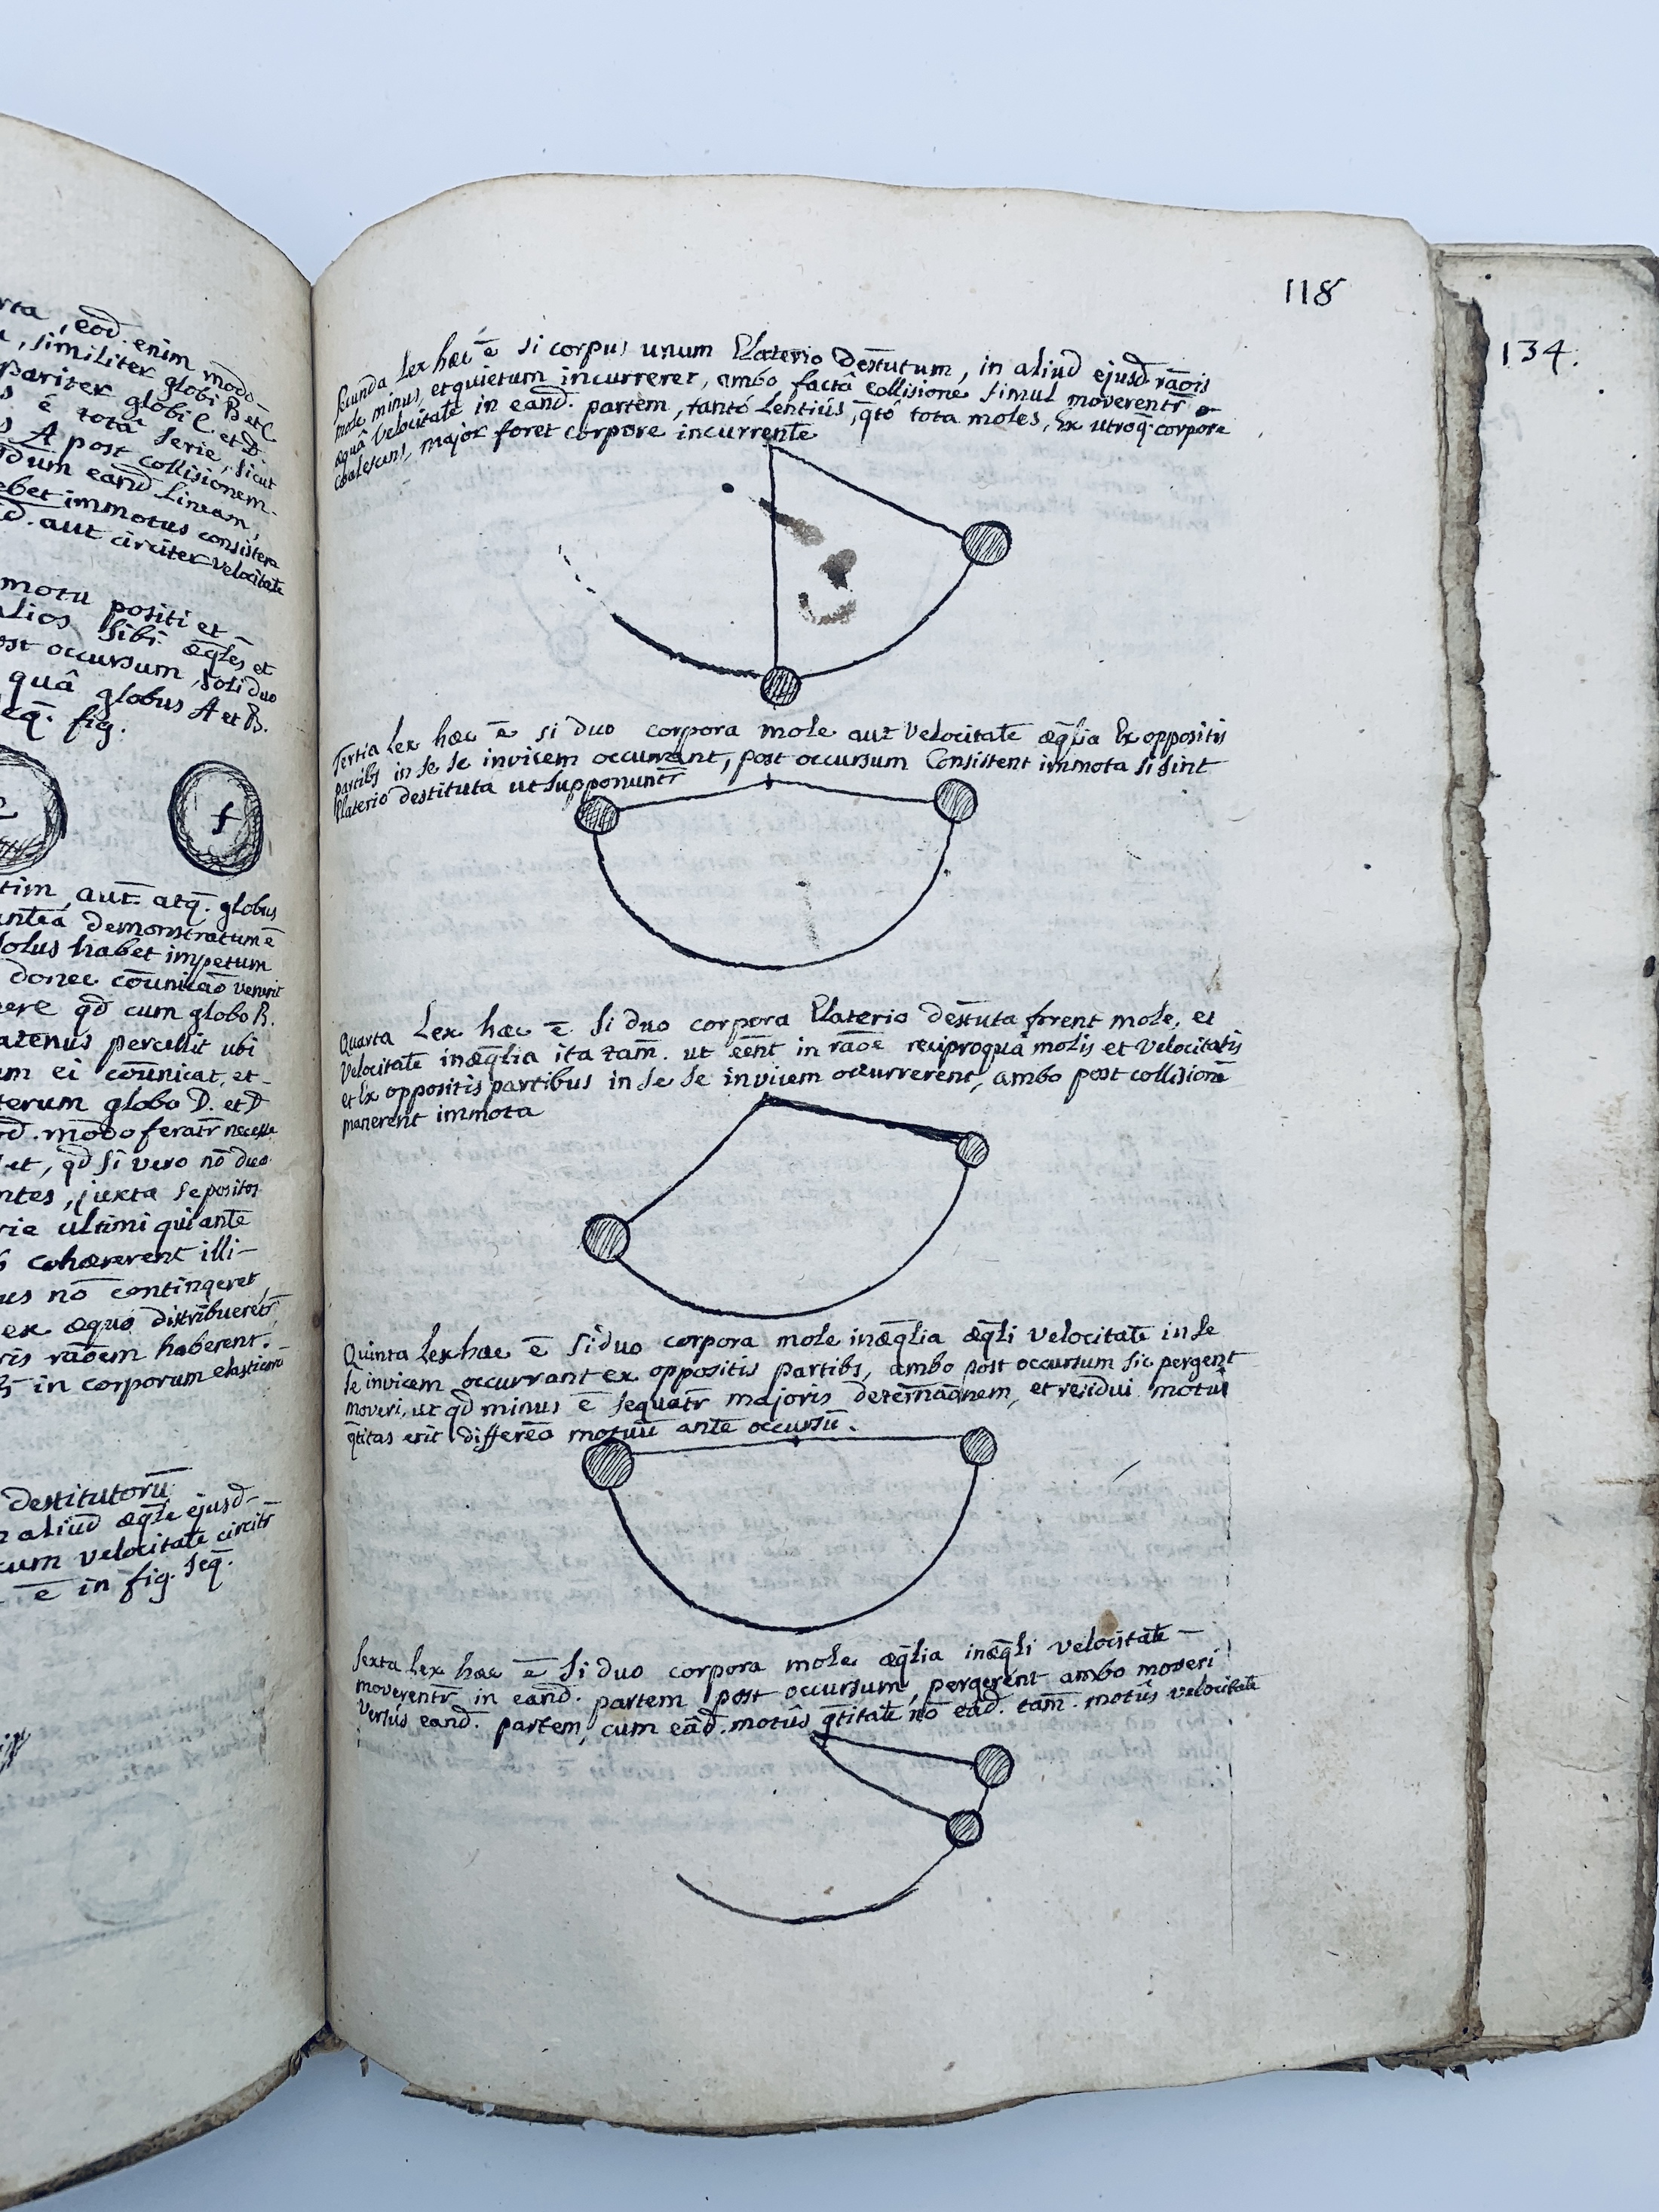 rta, eod. enim modo
similiter globi B et C
pariter globi C. et D
s é totâ serie, sicut
s A post collisionem
dum eand lineam,
ebet immotus consistere
d. aut circiter velocitate
motu positi et
alios sibi æqles et
ost occursum, soli duo
quâ globus A et B.
eq. fig.
f
tim, aut atq. globus
anteà demonstratum ē
solus habet impetum
donec cōunicaō venerit
ere qd cum globo B.
atenus percellit ubi
um ei cōunicat, et
terum globo D. et D
d. modo feratr necesse
et, qd si vero nō duo
ntes, juxta se positos
rie ultimi qui ante
cohærerent illi-
us nō contingeret
ex æquo distribueretr
ris raōem haberent.
in corporum elasticorū
destitutorū
aliud æqle ejusd-
cum velocitate circitr
ē in fig. seq.
118
134.
Secunda Lex hæc ē si corpus unum Elaterio destutum, in aliud ejusd. raōis
mole minus, et quietum incurreret, ambo factâ collisione simul moverentr
æquâ velocitate in eand. partem, tantó lentiús, qtó tota moles, Ex utroq. corpore
coalescens, major foret corpore incurrente
Tertia Lex hæc ē si duo corpora mole aut velocitate æqlia Ex oppositis
partibs in se se invicem occurrant, post occursum Consistent immota si sint
Elaterio destituta ut supponuntr
Quarta Lex hæc ē. Si duo corpora Elaterio destuta forent mole, et
velocitate inæqlia ita tam. ut eēnt in raōe reciproquâ molis et velocitatis
et Ex oppositis partibus in se se invicem occurrerent, ambo post collisionē
manerent immota
Quinta Lex hæc ē Si duo corpora mole inæqlia æqli velocitate in se
se invicem occurrant ex oppositis partibs, ambo post occursum sic pergent
moveri, ut qd minus ē sequatr majoris determāōnem, et residui motus
qtitas erit differēa motuū ante occursū.
Sexta Lex hæc ē Si duo corpora mole æqlia inæqli velocitate-
moverentr in eand. partem post occursum, pergerent ambo moveri
versús eand. partem, cum eâd. motûs qtitate nō eâd. tam. motûs velocitate